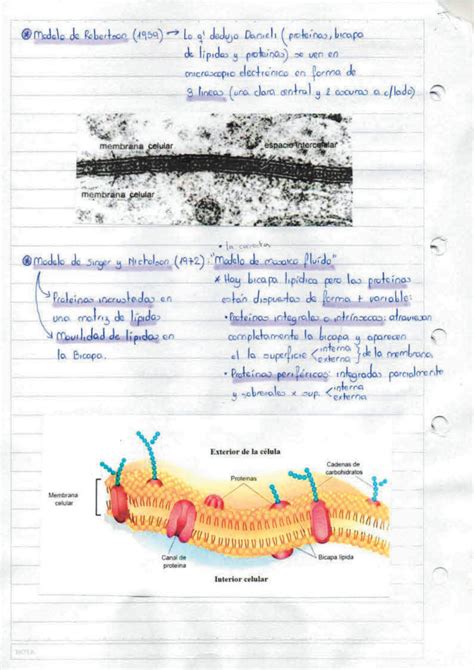 ⊛ Modelo de Robertson (1959) → Lo q' dedujo Danieli (proteínas, bicapa
de lípidos y proteínas) se ven en
microscopio electrónico en forma de
3 líneas (una clara central y 2 oscuras a c/lado)
membrana celular
espacio intercelular
membrana celular
• la correcta
⊛ Modelo de Singer y Nicholson (1972): "Modelo de mosaico fluido"
Proteínas incrustadas en
una matriz de lípidos
Movilidad de lípidos en
la Bicapa.
* Hay bicapa lipídica pero las proteínas
están dispuestas de forma + variable:
• Proteínas integrales o intrínsecas: atraviesan
completamente la bicapa y aparecen
el la superficie < interna
externa } de la membrana
• Proteínas periféricas: integradas parcialmente
y sobresalen x sup. < interna
externa
Exterior de la célula
Cadenas de
carbohidratos
Proteinas
Membrana
celular
Canal de
proteína
Bicapa lípida
Interior celular